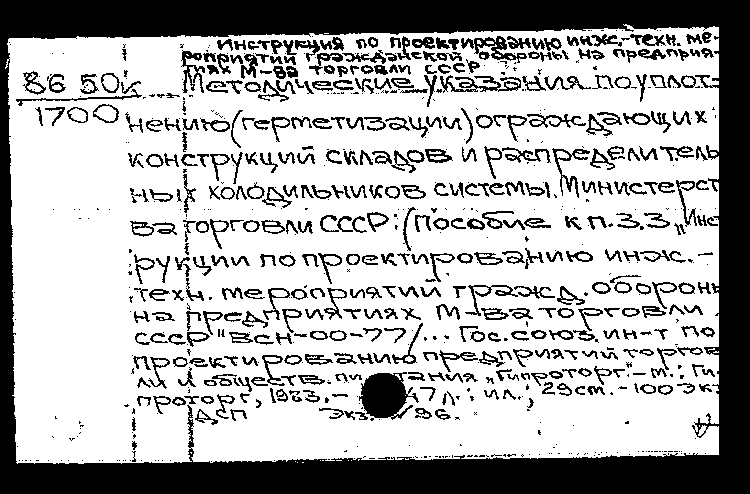 Инструкция по проектированию инж.-техн. ме-
роприятий гражданской обороны на предприя-
тиях М-ва торговли СССР
86 50к Методические указания по уплот-
1700
нению (герметизации) ограждающих
конструкций складов и распределитель
ных холодильников системы Министерст
ва торговли СССР: (Пособие к п.3.3 „Инс
рукции по проектированию инж.-
техн. мероприятий гражд. оборон
на предприятиях М-ва торговли
СССР" ВСН-00-77/... Гос.союз.ин-т по
проектированию предприятий торгов
ли и обществ. пи тания „Гипроторг".-М.: Ги
проторг, 1983.- 47 л.: ил.; 29см.-100 экз
ДСП Экз. 96.